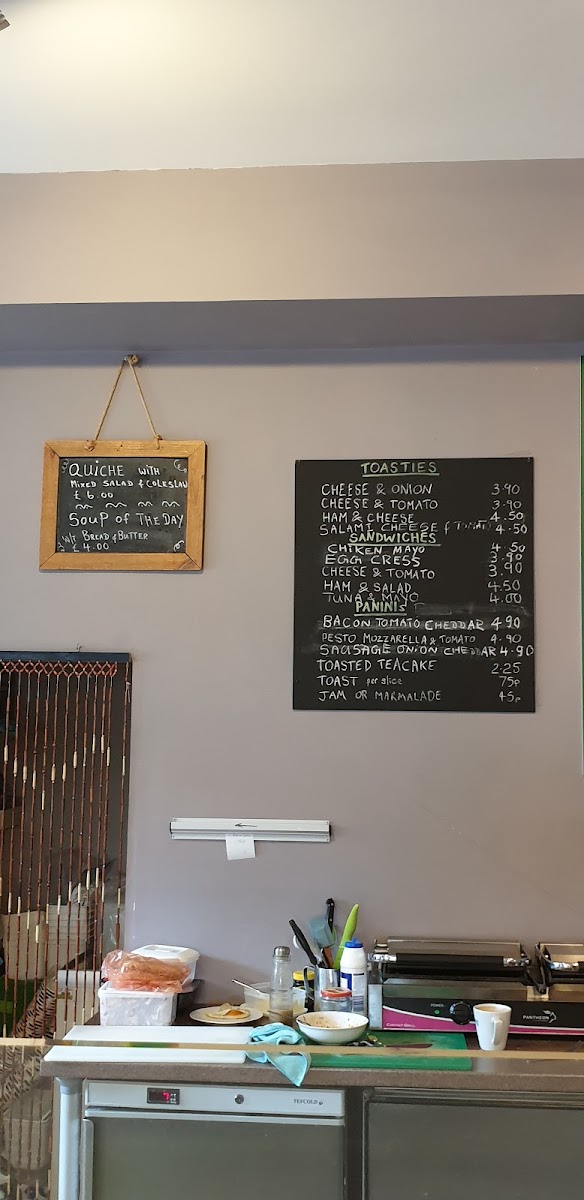 QUICHE WITH
MIXED SALAD & COLESLAW
£ 6.00
SOUP OF THE DAY
WITH BREAD & BUTTER
£ 4.00
TOASTIES
CHEESE & ONION 3.90
CHEESE & TOMATO 3.90
HAM & CHEESE 4.50
SALAMI CHEESE & TOMATO 4.50
SANDWICHES
CHIKEN MAYO 4.50
EGG CRESS 3.90
CHEESE & TOMATO 3.90
HAM & SALAD 4.50
TUNA & MAYO 4.00
PANINIS
BACON TOMATO CHEDDAR 4.90
PESTO MOZZARELLA & TOMATO 4.90
SAUSAGE ONION CHEDDAR 4.90
TOASTED TEACAKE 2.25
TOAST per slice 75p
JAM OR MARMALADE 45p
POWER
CONTACT GRILL
PANTHEON
TEFCOLD